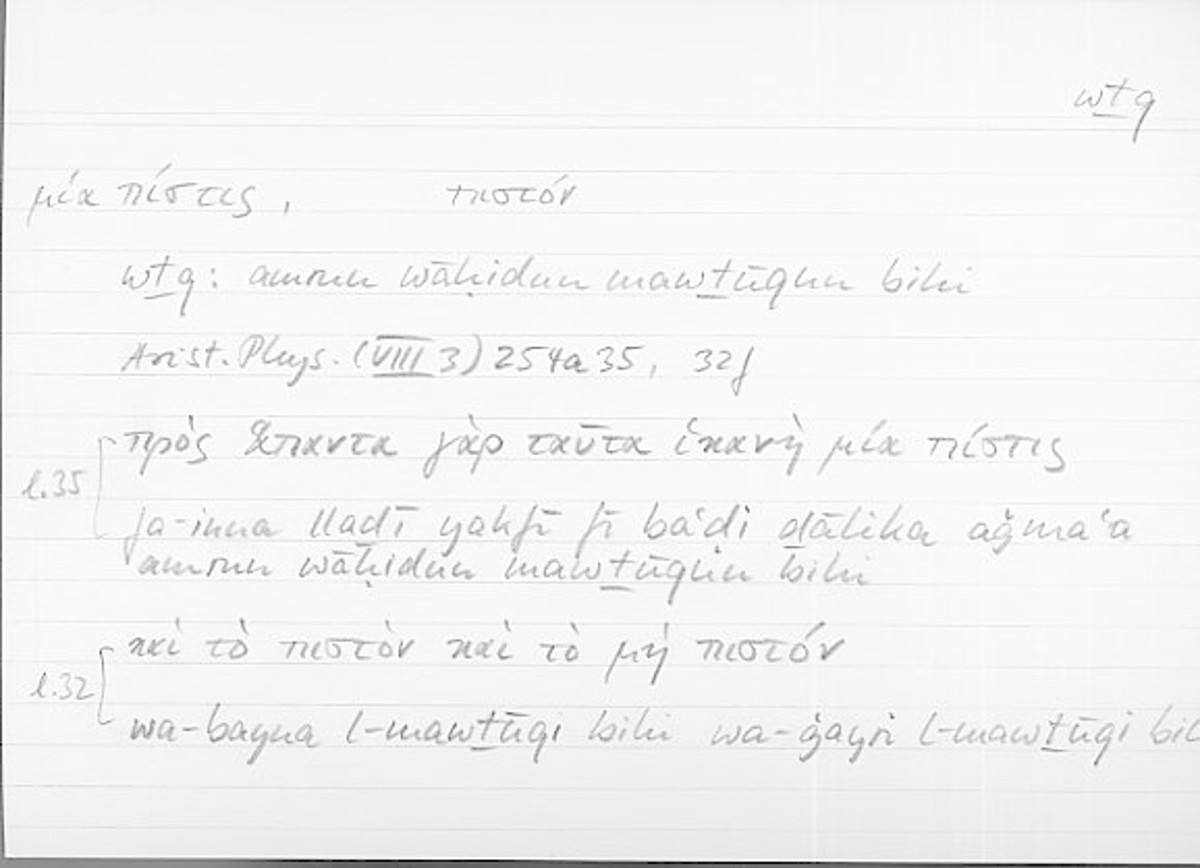 wṯq
μία πίστις, πιστόν
wṯq: amrun wāḥidun mawṯūqun bihi
Arist. Phys. (VIII 3) 254a35, 32f
πρὸς ἅπαντα γὰρ ταῦτα ἱκανὴ μία πίστις
l.35
fa-inna lladī yakfī fī baʿḍi ḏālika aǧmaʿa
amrun wāḥidun mawṯūqun bihi
καὶ τὸ πιστὸν καὶ τὸ μὴ πιστόν
l.32
wa-bayna l-mawṯūqi bihi wa-ġayri l-mawṯūqi bih